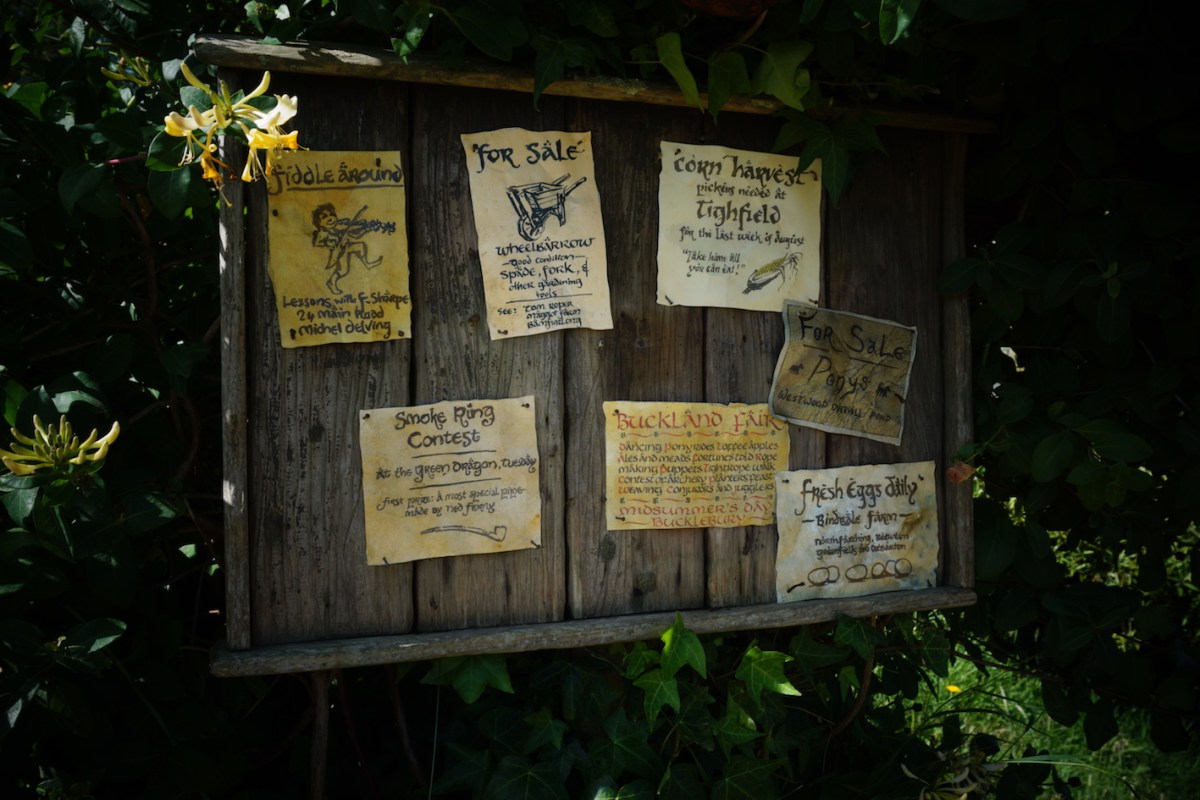 Fiddle Around
Lessons with F. Sharpe
24 Main Road
Michel Delving
For Sale
Wheelbarrow
Good condition
Spade, fork, &
other gardening
tools
See: Tom Roper
Maggot Farm
Bamfurlong
Corn Harvest
pickers needed at
Tighfield
for the last week of August
"Take home all
you can eat!"
For Sale
Ponys
Westwood
Smoke Ring
Contest
At the Green Dragon, Tuesday
first prize: A most special pipe
made by Ned Fiery
Buckland Fair
Dancing Pony rides Toffee apples
Ales and meads Fortunes told Rope
making Puppets Tightrope walk
contest of archery Planters feast
Weaving Conjurors and jugglers
Midsummer's Day
Bucklebury
Fresh Eggs daily
Bindbale Farm
Northfarthing, Between